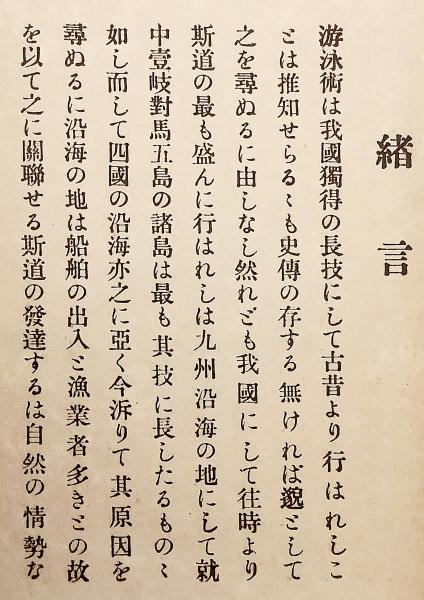 緒言
游泳術は我國獨得の長技にして古昔より行はれしこ
とは推知せらるゝも史傳の存する無ければ邈として
之を尋ぬるに由しなし然れども我國にして往時より
斯道の最も盛んに行はれしは九州沿海の地にして就
中壹岐對馬五島の諸島は最も其技に長したるものゝ
如し而して四國の沿海亦之に亞く今泝りて其原因を
尋ぬるに沿海の地は船舶の出入と漁業者多きとの故
を以て之に關聯せる斯道の發達するは自然の情勢な